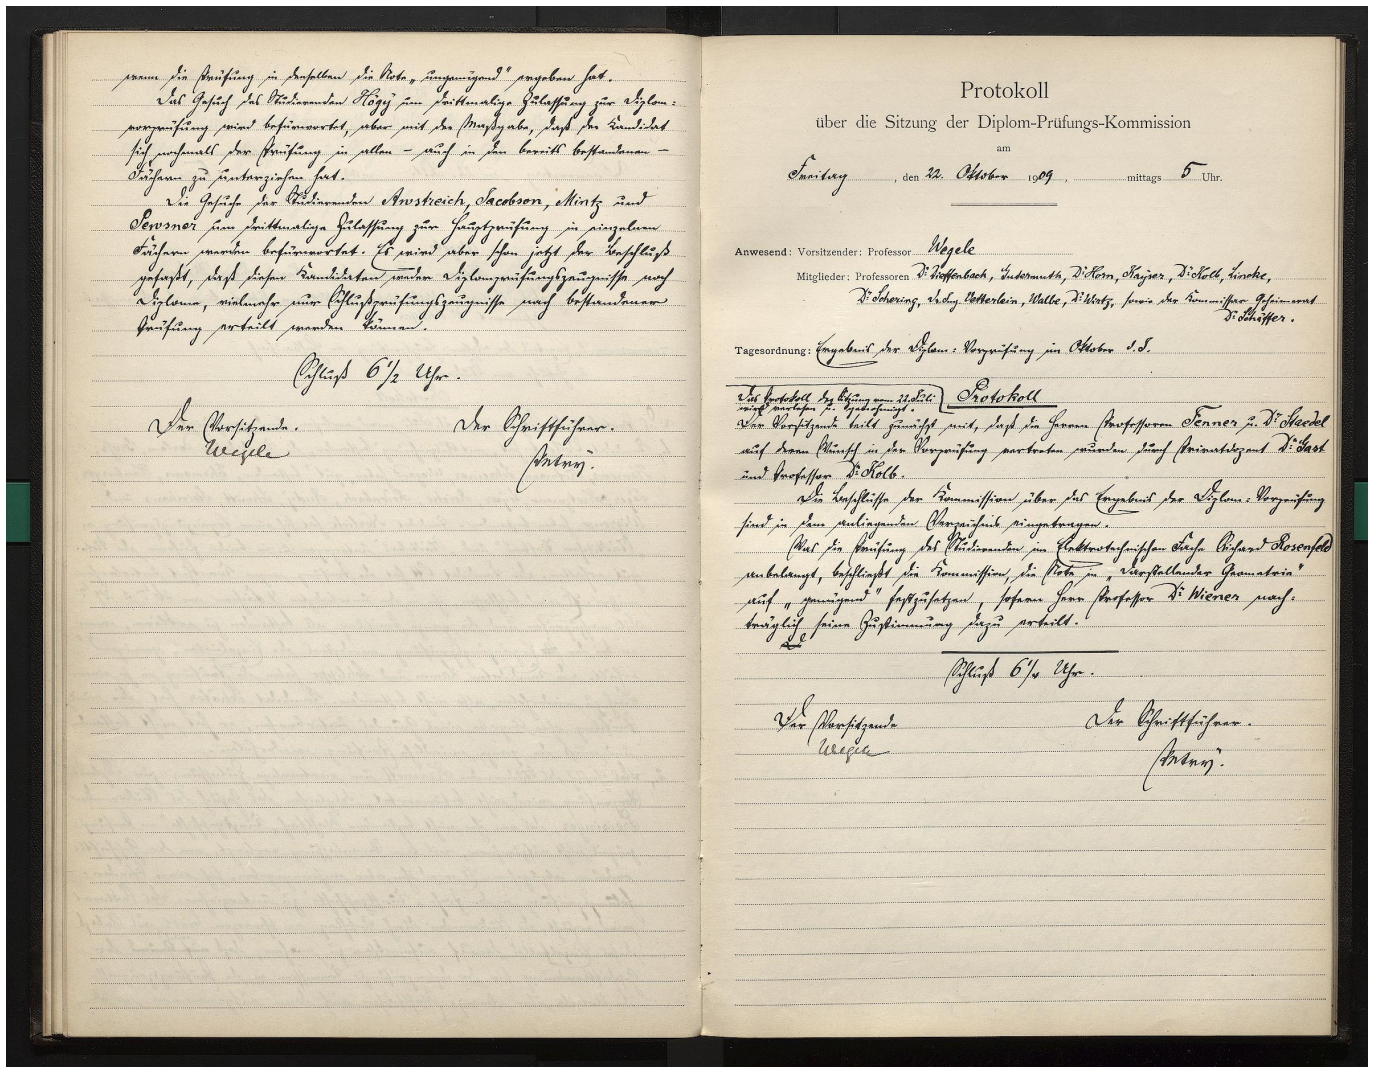 wenn die Prüfung in denselben die Note „ungenügend“ ergeben hat.
Das Gesuch des Studierenden Högy um drittmalige Zulassung zur Diplom-
vorprüfung wird befürwortet, aber mit der Maßgabe, daß der Kandidat
sich nochmals der Prüfung in allen – auch in den bereits bestandenen –
Fächern zu unterziehen hat.
Die Gesuche der Studierenden Anstreich, Jacobson, Mintz und
Pewsner um drittmalige Zulassung zur Hauptprüfung in einzelnen
Fächern werden befürwortet. Es wird aber schon jetzt der Beschluß
gefaßt, daß diesen Kandidaten weder Diplomprüfungszeugnisse noch
Diplome, vielmehr nur Schlußprüfungszeugnisse nach bestandener
Prüfung erteilt werden können.
Schluß 6 1/2 Uhr.
Der Vorsitzende. Der Schriftführer.
Wegele Petry.
Protokoll
über die Sitzung der Diplom-Prüfungs-Kommission
am
Freitag, den 22. Oktober 1909, mittags 5 Uhr.
Anwesend: Vorsitzender: Professor Wegele
Mitglieder: Professoren Dr Dieffenbach, Gutermuth, Dr Horn, Kayser, Dr Kolb, Lincke,
Dr Schering, Dr. Ing. Vetterlein, Walbe, Dr Wirtz, sowie der Kommissar Geheimerat
Dr Schäffer.
Tagesordnung: Ergebnis der Diplom-Vorprüfung im Oktober d. J.
Protokoll
Das Protokoll der Sitzung vom 22. Juli
wird verlesen u. genehmigt.
Der Vorsitzende teilt zunächst mit, daß die Herren Professoren Fenner u. Dr Staedel
auf deren Wunsch in der Vorprüfung vertreten wurden durch Privatdozent Dr Gast
und Professor Dr Kolb.
Die Beschlüsse der Kommission über das Ergebnis der Diplom-Vorprüfung
sind in dem anliegenden Verzeichnis eingetragen.
Was die Prüfung des Studierenden im Elektrotechnischen Fache Richard Rosenfeld
anbelangt, beschließt die Kommission, die Note in „Darstellender Geometrie“
auf „genügend“ festzusetzen, sofern Herr Professor Dr Wiener nach-
träglich seine Zustimmung dazu erteilt.
Schluß 6 1/4 Uhr.
Der Vorsitzende Der Schriftführer.
Wegele Petry.